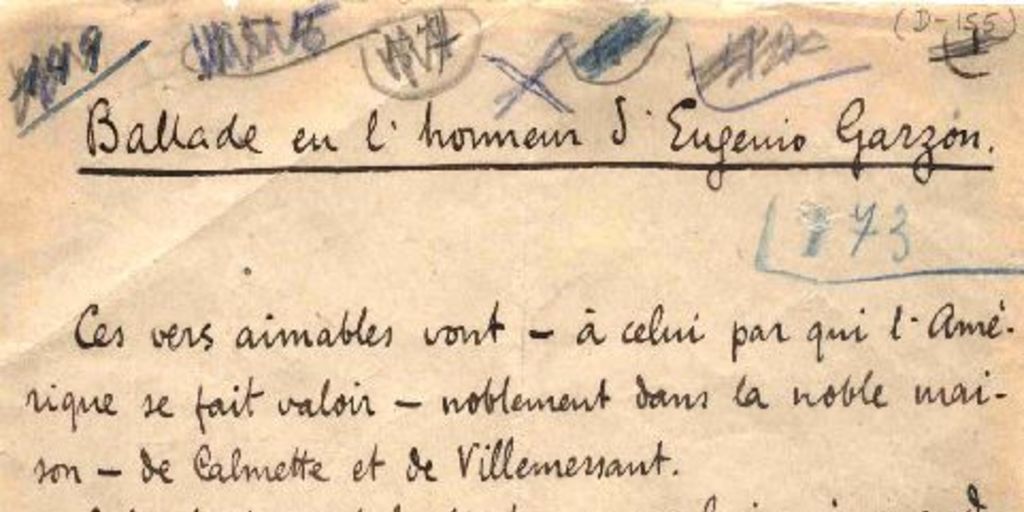 (D-155)
Ballade en l'honneur d'Eugenio Garzón.
173
Ces vers aimables vont – à celui par qui l'Amé-
rique se fait valoir – noblement dans la noble mai-
son – de Calmette et de Villemersant.